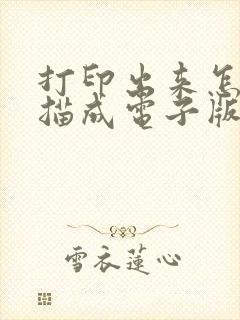 打印出来怎
描成电子版
雪衣莲心